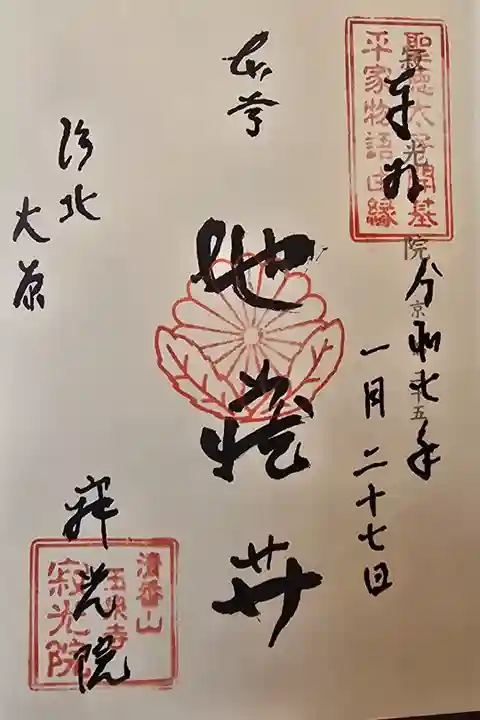 聖徳太子開基
平家物語由縁
奉拝
令和 年
一月二十七日
本尊
地蔵𦬇
洛北
大原
寂光院
清香山
玉泉寺
寂光院